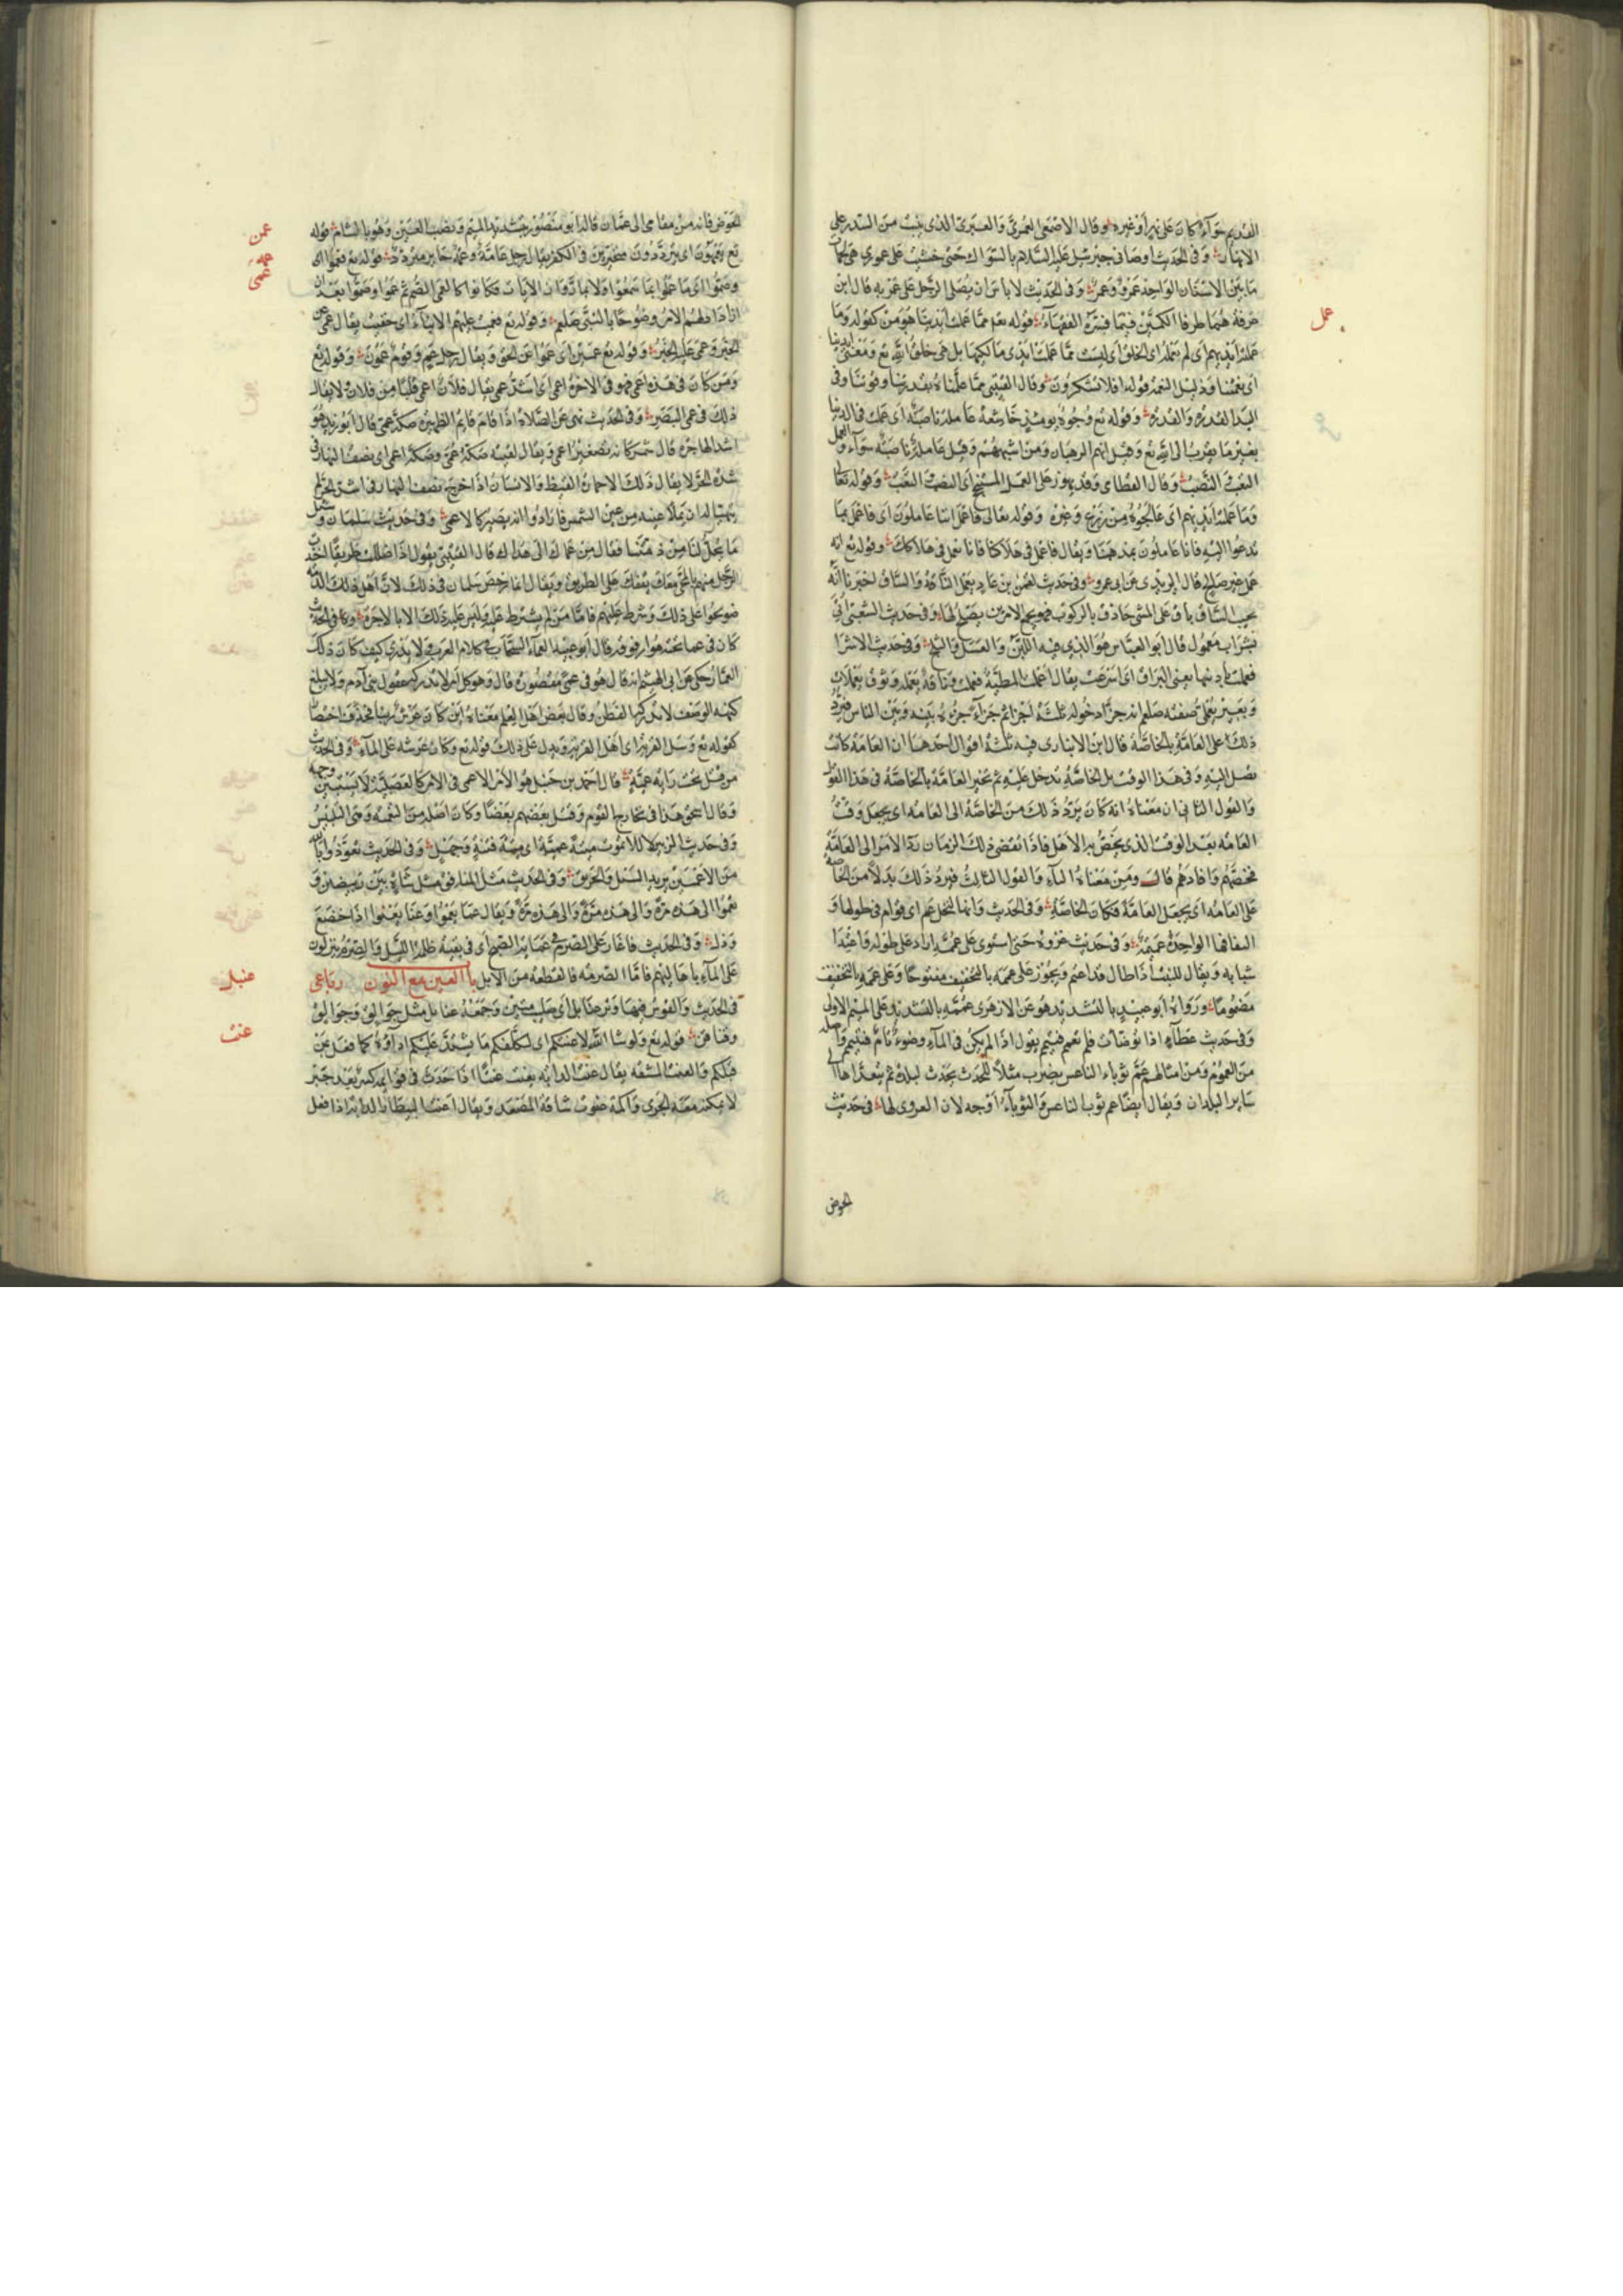 القديم سواء كان على نهر أو غيره وقال الاصمعى العمرى والعبرى الذى ينبت من السدر على
الانهار وفى الحديث اوصانى جبرئيل عليه السلام بالسواك حتى خشيت على عمورى هى لحمات
ما بين الاسنان الواحد عمر وعمر وفى الحديث لا باس ان يصلى الرجل على عمريه قال ابن
عرفة هما طرفا الكمين فيما فسره الفقهاء قوله تع مما عملت ايدينا هو من كقوله وما
عمل
عملته ايديهم اى لم يعمله اى الخلق أى ليست مما عملت ايدى مالكيها بل هى خلق الله تع ومعنى ايدينا
اى نعمنا ودليل النعمة قوله افلا تشكرون وقال القتيبى مما عملناه بقدرتنا وقوتنا وفى
اليد القدرة والقدرة وقوله تع وجوه يومئذ خاشعة عاملة ناصبة اى عملت فى الدنيا
بغير ما يقرب الى الله تع وقيل انهم الرهبان ومن اشبههم وقيل عاملة ناصبة سواء والعمل
التعب النصب وقال القطامى وقد يهوز على العمل المستنجح اى النصب التعب وقوله تعالى
وما عملته أيديهم اى عالجوه من زرع وغيره وقوله تعالى فاعمل اننا عاملون اى فاعمل بما
تدعوا اليه فاننا عاملون بمذهبنا ويقال فاعمل فى هلاكنا فاننا نعمل فى هلاكك وقوله تع انه
عمل غير صالح قال اليزيدى عن ابى عمرو وفى حديث لقمن بن عاد يعمل الناقة والساق اخبرنا انه
يجب الساق باق على المشى حاذق بالركوب فهو يجمع الامرين يصلح لها وفى حديث الشعبى أتى
بشراب معمول قال ابو العباس هو الذى فيه اللبن والعسل والثلج وفى حديث الاسرا
فعملت باذنيها يعنى البراق اى اسرعت يقال اعملت المطية فعملت وناقة يعملة ونوق يعملات
وفى صفته صلعم انه جزأ دخوله ثلثة اجزاء ثم جزأ جزءه بينه وبين الناس فيرد
ذلك على العامة بالخاصة قال ابن الانبارى فيه ثلثة اقوال احدها ان العامة كانت
تصل اليه فى هذا الوقت بل الخاصة تدخل عليه ثم تخبر العامة بالخاصة فى هذا القول
والقول الثانى ان معناه انه كان يرد ذلك من الخاصة الى العامة اى يجعل وقت
العامة بعد الوقت الذى يختص به الاهل فاذا انقضى ذلك الزمان رد الامر الى العامة
فخصهم وافادهم قال ومن معناه الباء والقول الثالث فيرد ذلك بدلا من الخاصة
على العامة اى يجعل العامة فكان الخاصة وفى الحديث وانها لنخل عم اى قوام فى طولها و
التفافها الواحدة عميمة وفى حديث عروة حتى استوى على عممه اراد على طوله واعتدا
شبابه ويقال للنبت اذا طال قد اعتم ويجوز على عممه بالتخفيف مفتوحا وعلى عممه بالتخفيف
مضموما ورواه أبو عبيد بالتشديد هو عن الازهرى عممه بالتشديد على الميم الاولى
وفى حديث عطاء اذا توضات فلم تعمم فتيمم يقول اذا لم يكن فى الماء وضوء تام فتيمم واصله
من العموم ومن امثالهم عم ثوباء الناعس يضرب مثلا للحدث يحدث لبلدة ثم يتعداها الى
ساير البلدان ويقال ايضا عم ثوب الناعس والثوباء اوجه لان العروى لها فى حديث
الحوض
الحوض فانه من مقامى الى عمان قال ابو منصور بتشديد الميم ونصب العين وهو بالشام قوله
عمن
تع يعمهون اى يترددون متحيرين فى الكفر يقال رجل عامه وعمه حاير متردد قوله تع فعموا اى
عمه
عمى
وصموا اى ما عملوا بما سمعوا ولا بما رأوا من الايات فكانوا كالعمى الصم ثم عموا وصموا بعد ان
ازدادلهم الامر وضوحا بالنبى صلعم وقوله تع فعميت عليهم الانباء اى خفيت يقال عمى عن
الخبر وعمى عليه الخبر وقوله تع عمين اى عموا عن الحق ويقال رجل عم وقوم عمون وقوله تع
ومن كان فى هذه اعمى فهو فى الاخرة اعمى اى اشد عمى يقال فلان اعمى قلبا من فلان لا يقال
ذلك فى عمى البصر وفى الحديث نهى عن الصلاة اذا قام قايم الظهيرة صكة عمى قال ابو زيد هو
اشد الهاجرة قال شمر كانه تصغير اعمى ويقال لقيته صكة عمى وصكة اعمى اى نصف النهار فى
شدة الحر لا يقال ذلك الا حمارة القيظ والانسان اذا خرج نصف النهار فى اشد الحر لم
يتهيا له ان يملأ عينيه من عين الشمس فارادوا انه يصير كالاعمى وفى حديث سلمان وسئل
ما يحل لنا من ذمتنا فقال من عماك الى هداك قال القتيبى يقول اذا ضللت طريقا اخذت
الرجل منهم بالمجئ معك يقفك على الطريق ويقال انما رخص سلمان فى ذلك لان اهل ذلك الذمه
صولحوا على ذلك وشرط عليهم فاما من لم يشترط عليه وليس عليه ذلك الا بالاجرة وكما فى الحديث
كان فى عما تحته هوا وفوقه قال ابو عبيد العماء السحاب فى كلام العرب ولا يدرى كيف كان ذلك
العما وحكى عن ابى الهيثم انه قال هو فى عمى مقصور قال وهو كل امر لا تدركه عقول بنى آدم ولا يبلغ
كنهه الوصف لا تدركه الفطن وقال بعض اهل العلم معناه اين كان عرش ربنا فحذف اختصارا
كقوله تع وسل القرية اى اهل القرية ويدل على ذلك قوله تع وكان عرشه على الماء وفى الحديث
من قتل تحت راية عمية قال احمد بن حنبل هو الامر الاعمى فى الامر كالعصبية لا يستبين وجهه
وقال اسحق هذا فى تخارج القوم وقتل بعضهم بعضا وكان اصله من التعمية وهى التلبيس
وفى حديث الزبير لئلا اموت ميتة عمية اى ميتة فتنة وجهل وفى الحديث تعوذوا بالله
من الاعميين يريد السيل والحريق وفى الحديث مثل المنافق مثل شاة بين ربيضين و
تعموا الى هذه مرة والى هذه مرة ويقال عما يعموا وعنا يعنوا اذا خضع
وذل وفى الحديث فاغار على الصرم فى عماية الصبح أى فى بقية ظلمة الليل والصرم ينزلون
على الماء باهاليهم فاما الصرمة فالقطعة من الابل باب العين مع النون رباعى
عنبل
فى الحديث والقوس فيها وتر عنابل أى صلب متين وجمعه عنابل مثل جوالق وجوالق
عنت
وقناقن قوله تع ولو شا الله لاعنتكم اى لكلفكم ما يشتد عليكم اداؤه كما فعل بمن
قبلكم والعنت المشقه يقال عنت الدابة يعنت عنتا اذا حدث فى قوايمه كسر بعد جبر
لا يمكنه معه الجرى واكمة عنوت شاقة المصعد ويقال اعنت البيطار الدابة اذا فعل